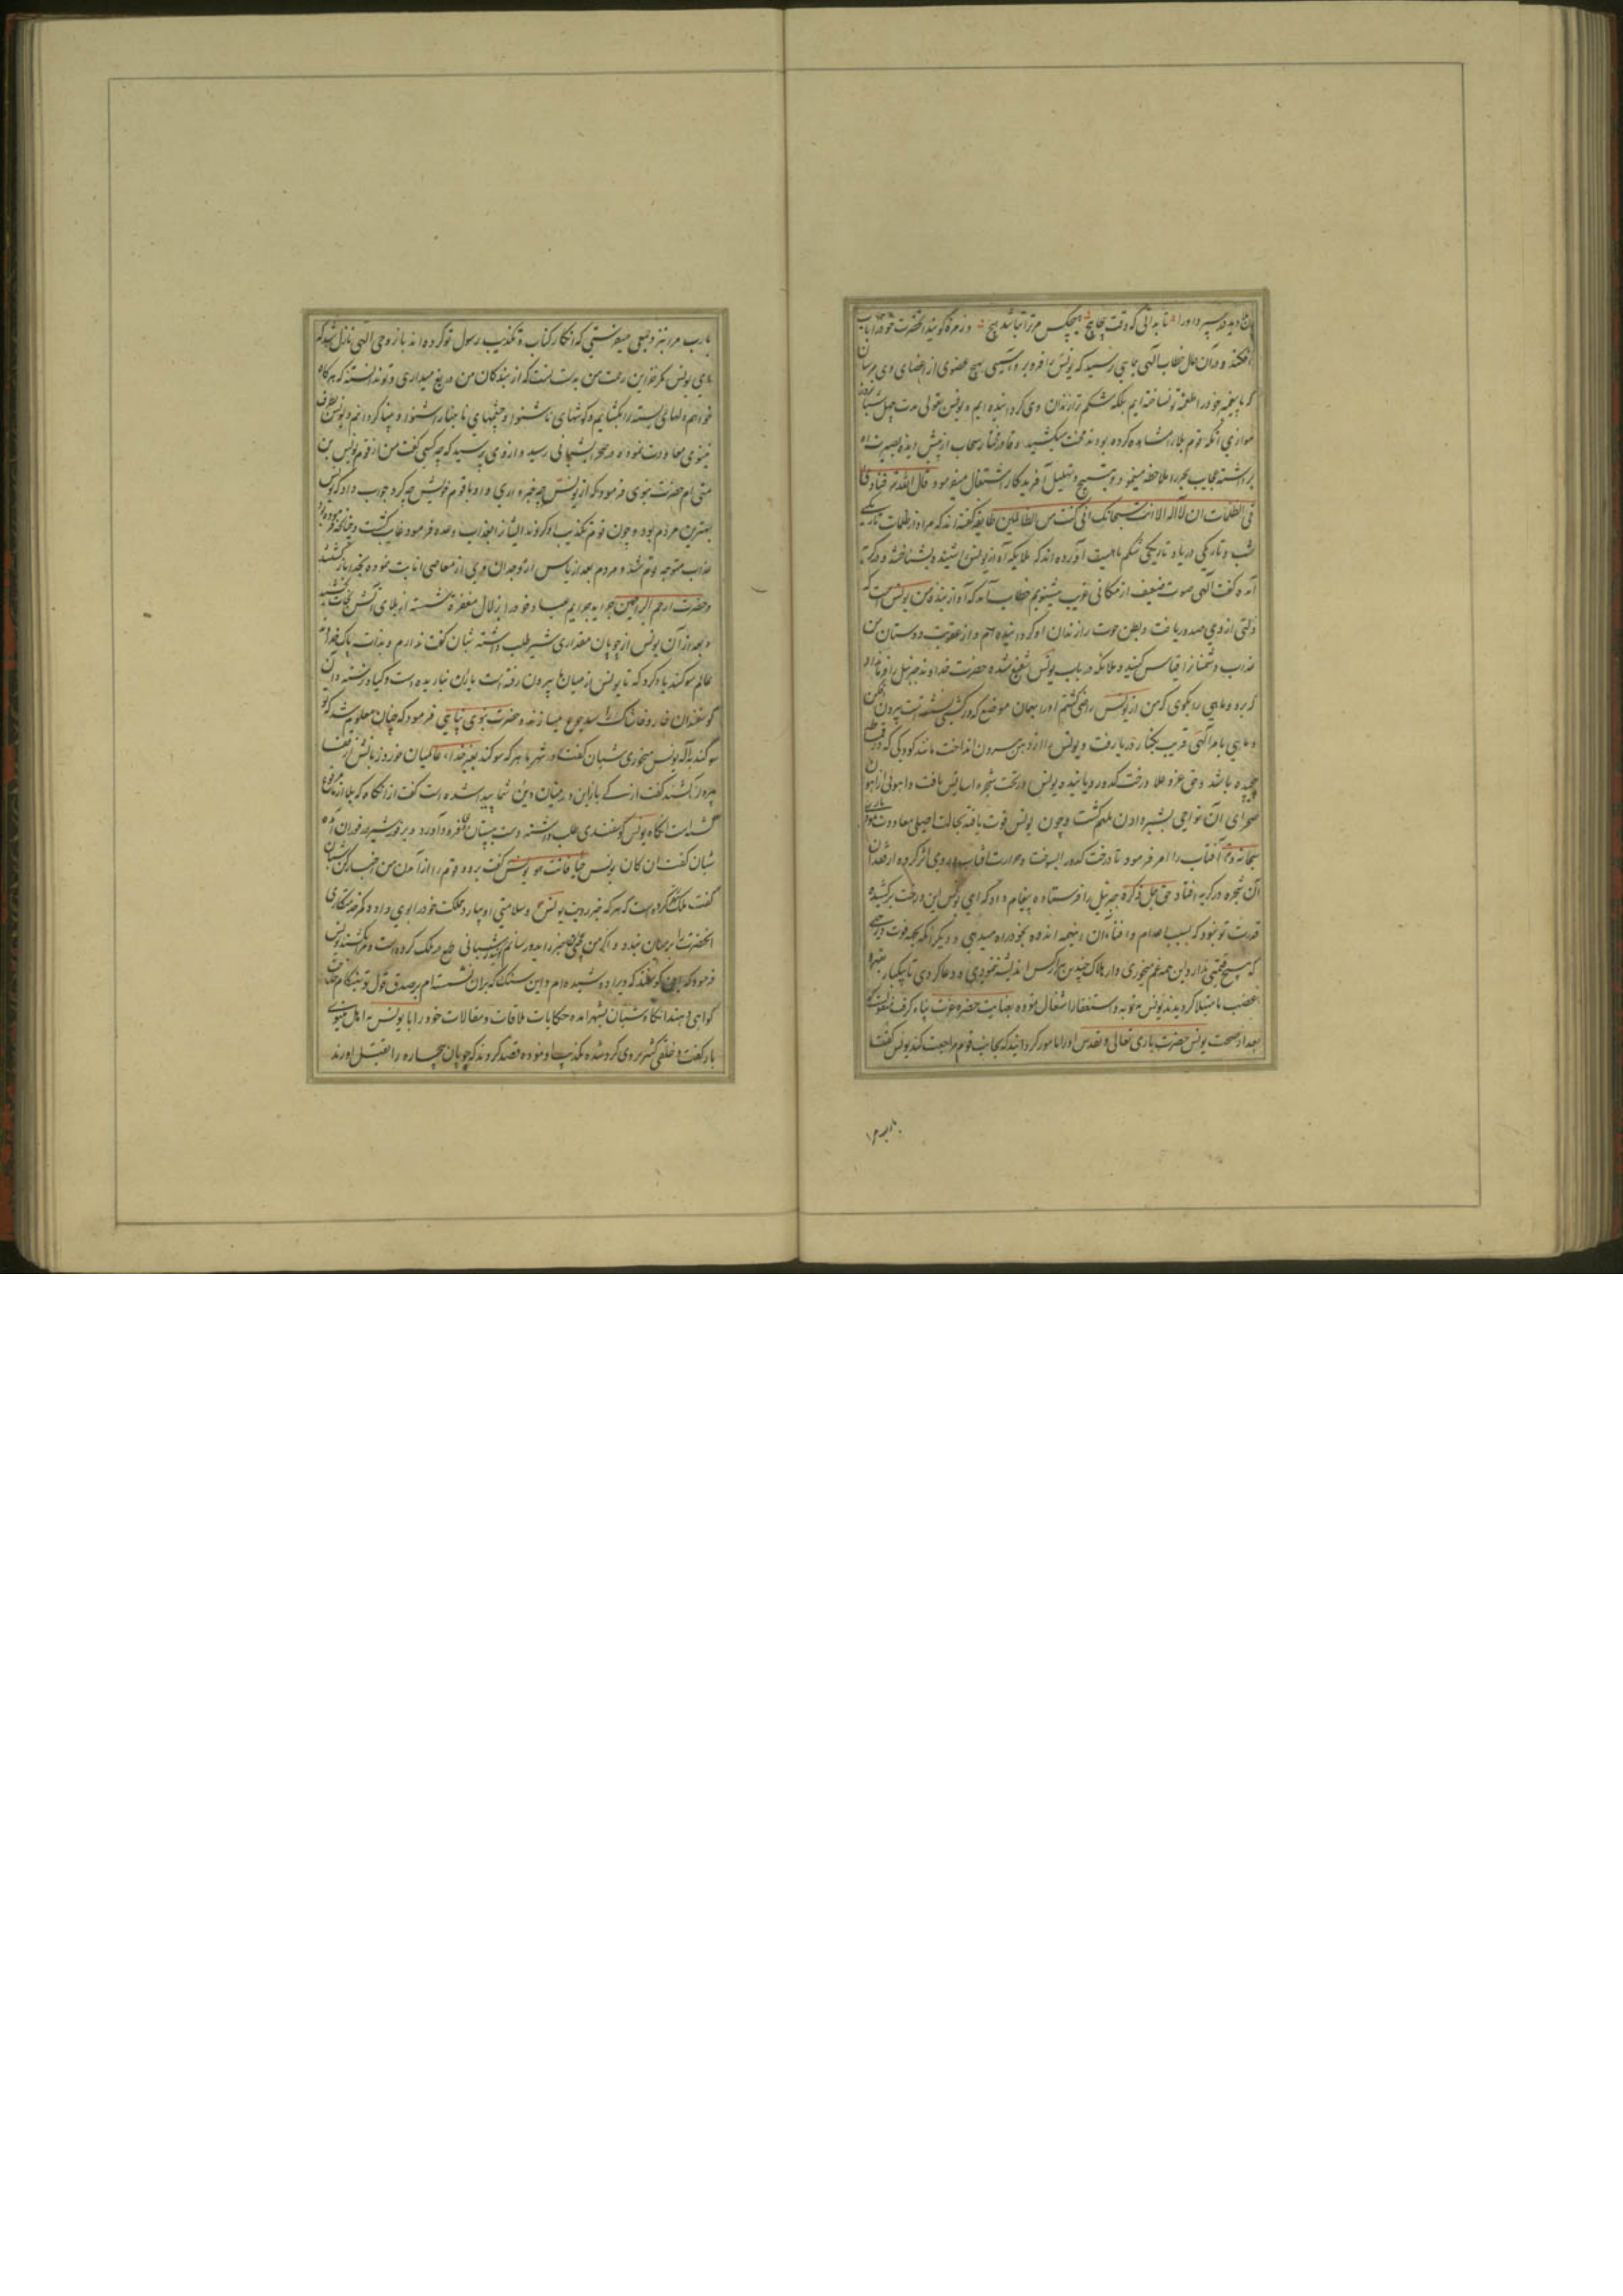 تا بدانی که وقت پیچا پیچ هیچکس مر ترا نباشد هیچ و زمره گویند آنحضرت خود را باب
افکند و در آن حال خطاب الهی بماهی رسید که یونس را فرو بر و آسیبی بهیچ عضوی از اعضای وی مرسان
که ما پیغمبر خود را طعمه تو نساخته ایم بلکه شکم ترا زندان وی گردانیده ایم و یونس بقولی مدت چهل شبانروز
موازی آنکه قوم بلا را مشاهده کرده بودند محنت میکشید و قادر مختار سحاب از پیش دیده بصیرت او
برداشته عجایب بحر را ملاحظه مینمود و بتسبیح و تهلیل آفریدگار اشتغال میفرمود قال الله تع فنادی
فی الظلمات ان لا اله الا انت سبحانک انی کنت من الظالمین طایفه گفته اند که مراد از ظلمات تاریکی
شب و تاریکی دریا و تاریکی شکم ماهیست آورده اند که ملایکه آواز یونس را شنیده بشناختند و در گریه
آمده گفتند الهی صوت ضعیف از مکانی غریب میشنویم خطاب آمد که آواز بنده من یونس است که
ذلتی از وی صدور یافت و بطن حوت را زندان او گردانیده ام و از عقوبت دوستان من
عذاب دشمنانرا قیاس کنید و ملائکه در باب یونس شفیع شده حضرت خداوند جبرئیل را فرمان داد
که برو و ماهی را بگوی که من از یونس راضی گشتم او را بهمان موضع که در کشتی نشسته است بیرون افکن
و ماهی بامر الهی قریب بکنار دریا رفت و یونس را از دهن بیرون انداخت مانند کودکی که در قماط
پیچیده باشد و حق عز و علا درخت کدو رویانیده یونس در تحت شجره آسایش یافت و آهوئی از آهوان
صحرای آن نواحی بشیر دادن ملهم گشت و چون یونس قوت یافته بحالت اصلی معاودت نمود باری
سبحانه و تع آفتاب را امر فرمود تا درخت کدو را بسوخت و حرارت آفتاب در وی اثر کرده از فقدان
آن شجره در گریه افتاد حق جل ذکره جبرئیل را فرستاده پیغام داد که ای یونس این درخت برکشیده
قدرت تو نبود که بسبب اعدام و افنای آن اینهمه اندوه بخود راه میدهی و دیگر آنکه بجهت فوت درختی
که هیچ قیمتی ندارد این همه غم میخوری و از هلاک چندین هزار کس اندیشه ننمودی و دعا کردی تا بیکبار
بغضب ما مبتلا گردیدند یونس بتوبه و استغفار اشتغال نموده بعنایت حضرت عزت پناه گرفت منقولست که
بعد از صحت یونس حضرت باری تعالی و تقدس او را مامور گردانید که بجانب قوم مراجعت کند یونس گفت
یارب مرا نزد جمعی میفرستی که انکار کتاب و تکذیب رسول تو کرده اند باز وحی الهی نازل شد که
ای یونس مگر خزاین رحمت من بدست تست که از بندگان من دریغ میداری و تو ندانسته که هرگاه
خواهم دلهای بسته را بگشایم و گوشهای ناشنوا و چشمهای نابینا را شنوا و بینا گردانم و یونس بطرف
نینوی معاودت نموده در صحرا بشبانی رسید و از وی پرسید که چه کسی گفت من از قوم یونس بن
متی ام حضرت نبوی فرمود که از یونس چه خبر داری و او با قوم خویش چه کرد جواب داد که یونس
بهترین مردم بود و چون قوم تکذیب او کردند ایشانرا بعذاب وعده فرمود و غایب گشت و چنانکه فرموده بود
عذاب متوجه قوم شد و مردم بعد از یاس از وجدان وی از معاصی انابت نموده بخدا بازگشتند
و حضرت ارحم الراحمین جراید جرایم عباد خود را بزلال مغفرت شسته از بلای آتش نجات بخشید
و بعد از آن یونس از چوپان مقداری شیر طلب داشته شبان گفت ندارم و بذات پاک خدای
عالم سوگند یاد کرد که تا یونس از میان ما بیرون رفته است باران نباریده است و گیاه نرسته و این
گوسفندان خار و خاشاک را سد جوع میسازند و حضرت نبوی پناهی فرمود که چنان معلوم شد که تو
سوگند بخدای یونس میخوری شبان گفت در شهر ما هر که سوگند بغیر خدای عالمیان خورد زبانش از قفا
بیرون کشند گفت از کی باز این در میان دین شما پیدا شده است گفت از آنگاه که بلا از ما مرفوع
گشته است آنگاه یونس گوسفندی طلب داشته دست بپستان او فرود آورد و بر فور شیر در فوران آمد
شبان گفت ان کان یونس حیا فانت هو یونس گفت برو و قوم را از آمدن من اخبار کن شبان
گفت ملک نذر کرده است که هر که خبر رویت یونس و سلامتی او بیارد مملکت خود را بوی داده کمر خدمتکاری
آنحضرت را بر میان بندد و اگر من این خبر را بدو رسانم گوید شبانی طمع در ملک کرده است و مرا بکشند یونس
فرمود که این گوسفند که ویرا دوشیده ام و این سنگ که بر آن نشسته ام بر صدق قول تو بهنگام حاجت
گواهی دهند آنگاه شبان بشهر آمده حکایات ملاقات و مقالات خود را با یونس به اهل نینوی
بازگفت و خلقی کثیر بر وی گرد شده تکذیب او نموده قصد کردند که چوپان بیچاره را بقتل آورند